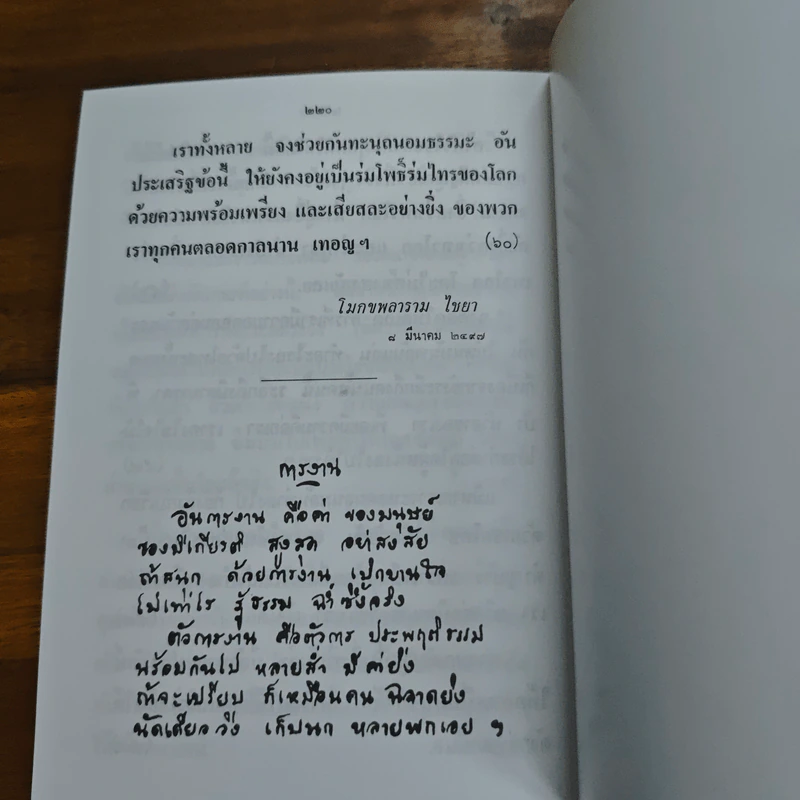 ๒๒๐
เราทั้งหลาย จงช่วยกันทะนุถนอมธรรมะ อัน
ประเสริฐข้อนี้ ให้ยังคงอยู่เป็นร่มโพธิ์ร่มไทรของโลก
ด้วยความพร้อมเพรียง และเสียสละอย่างยิ่ง ของพวก
เราทุกคนตลอดกาลนาน เทอญ ฯ (๖๐)
โมกขพลาราม ไชยา
๘ มีนาคม ๒๔๙๗
การงาน
อันการงาน คือค่า ของมนุษย์
ของมีเกียรติ สูงสุด อย่าสงสัย
ถ้าสนุก ด้วยการงาน เบิกบานใจ
ไม่เท่าไร รู้ธรรม ฉ่ำซึ้งจริง
ตัวการงาน คือตัวการ ประพฤติธรรม
พร้อมกันไป หลายส่ำ มีค่ายิ่ง
ถ้าจะเปรียบ ก็เหมือนคน ฉลาดยิง
นัดเดียววิ่ง เก็บนก หลายพกเอย ฯ